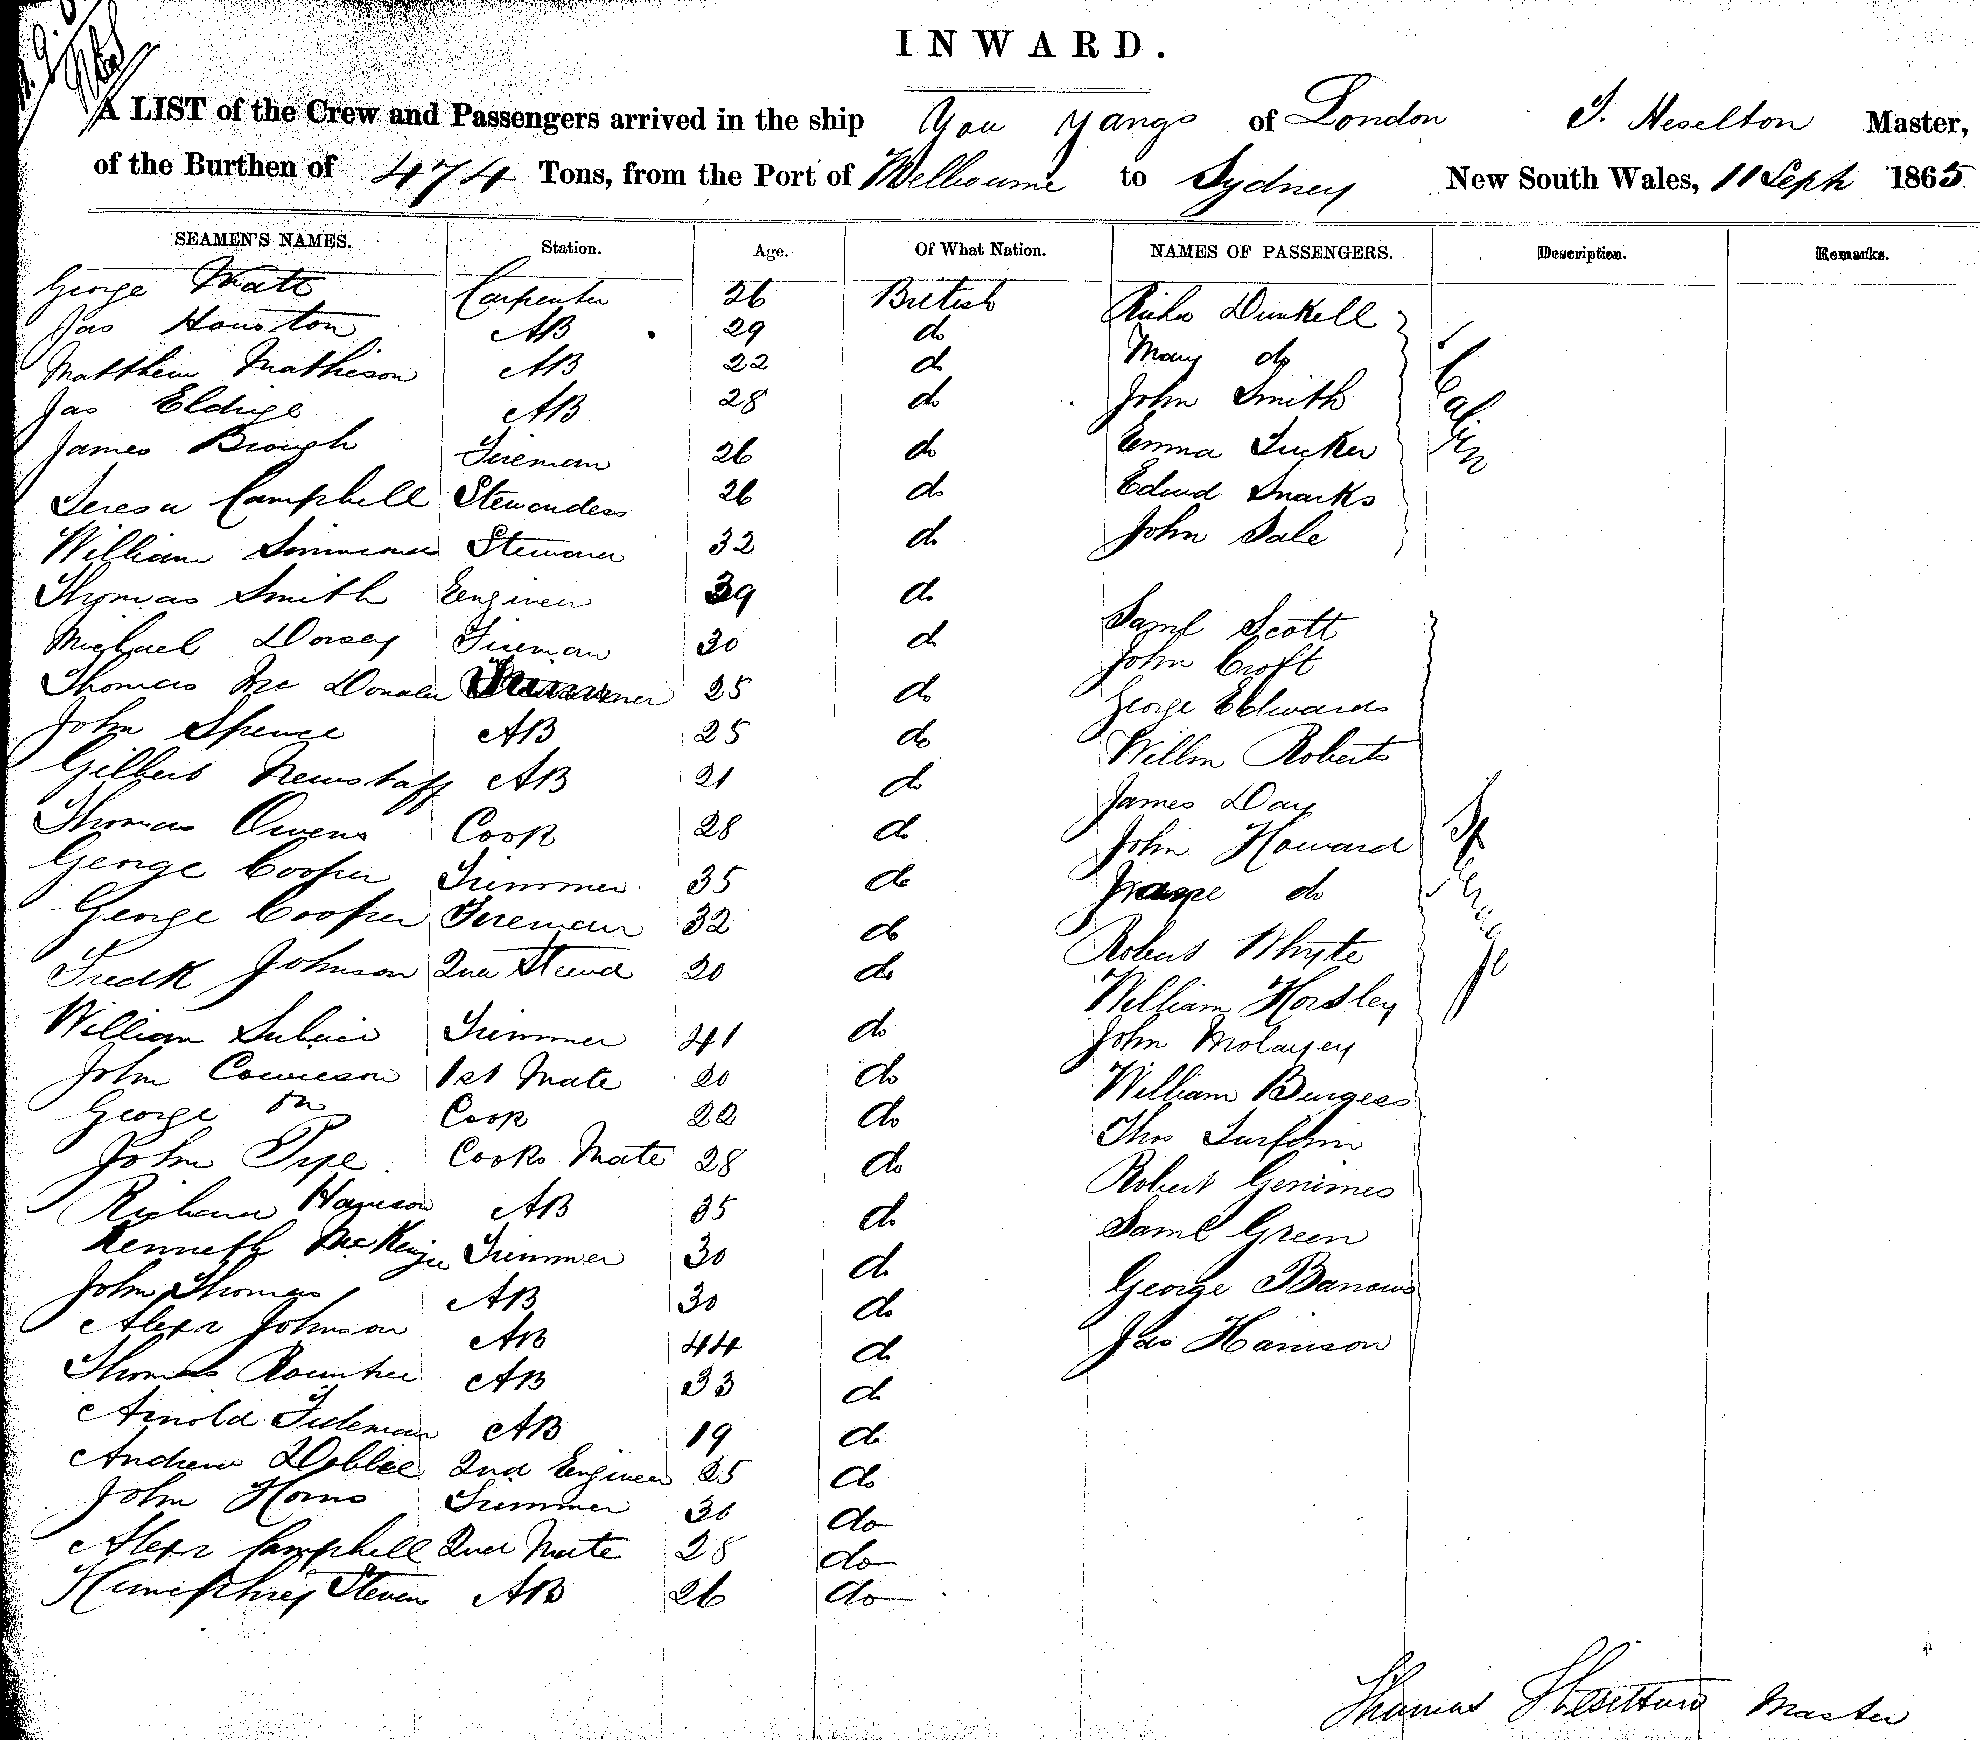 INWARD.
A LIST of the Crew and Passengers arrived in the ship You Yangs of London T. Heselton Master,
of the Burthen of 474 Tons, from the Port of Melbourne to Sydney New South Wales, 11 Sept 1865
SEAMEN'S NAMES. Station. Age. Of What Nation. NAMES OF PASSENGERS. Description. Remarks.
George Carpenter 26 British Richd Dunkell
Jas Houston AB 29 do Mary do
Matthew Mathieson AB 22 do John Smith
Jas Eldrige AB 28 do Emma Tucker
James Brough Fireman 26 do Edwd Snarks
Teresa Campbell Stewardess 26 do John Sale
Cabin
William Simmons Steward 32 do
Thomas Smith Engineer 39 do Saml Scott
Michael Dorsey Fireman 30 do John Croft
Thomas Mc Donald 25 do George Edwards
John Spence AB 25 do Willm Roberts
Gilbert Newstaff AB 21 do James Day
Thomas Owens Cook 28 do John Howard
George Cooper Trimmer 35 do do
George Cooper Fireman 32 do Robert Whyte
Fredk Johnson 2nd Stewd 20 do William Horsley
Steerage
William Trimmer 41 do John
John Cowieson 1st Mate 20 do William Burgess
George On Cook 22 do Thos
John Pipe Cooks Mate 28 do Robert
Richard Harrison AB 35 do Saml Green
Kenneth McKenzie Trimmer 30 do George Barrows
John Thomas AB 30 do Jas Harrison
Alexr Johnson AB 44 do
Thomas Rountree AB 33 do
Arnold Tideman AB 19 do
Andrew Dobbie 2nd Engineer 25 do
John Horns Trimmer 30 do
Alexr Campbell 2nd Mate 28 do
Humphrey Stevens AB 26 do
Thomas Heselton Master